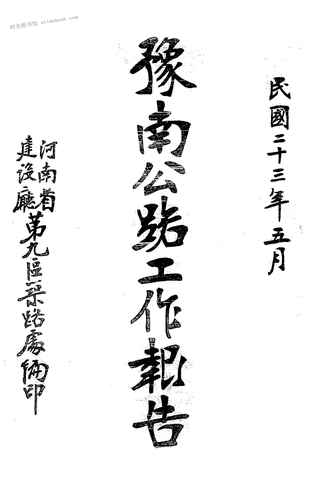 民國二十三年五月
豫南公路工作報告
河南省
建設廳
第九區築路處編印